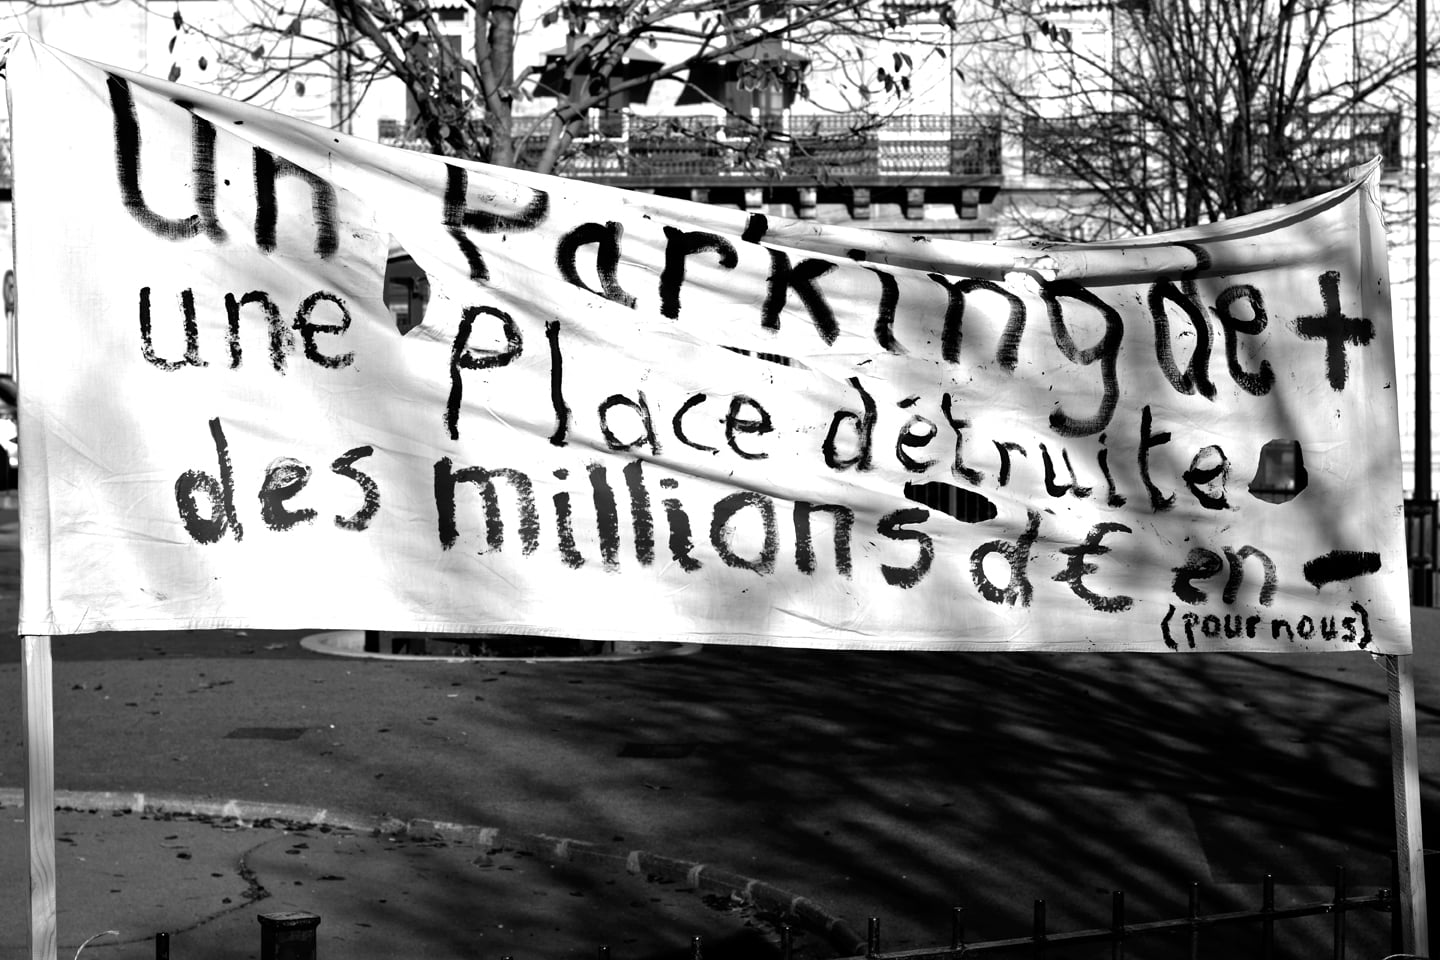 Un Parking de +
une Place détruite
des millions d'€ en -
(pour nous)